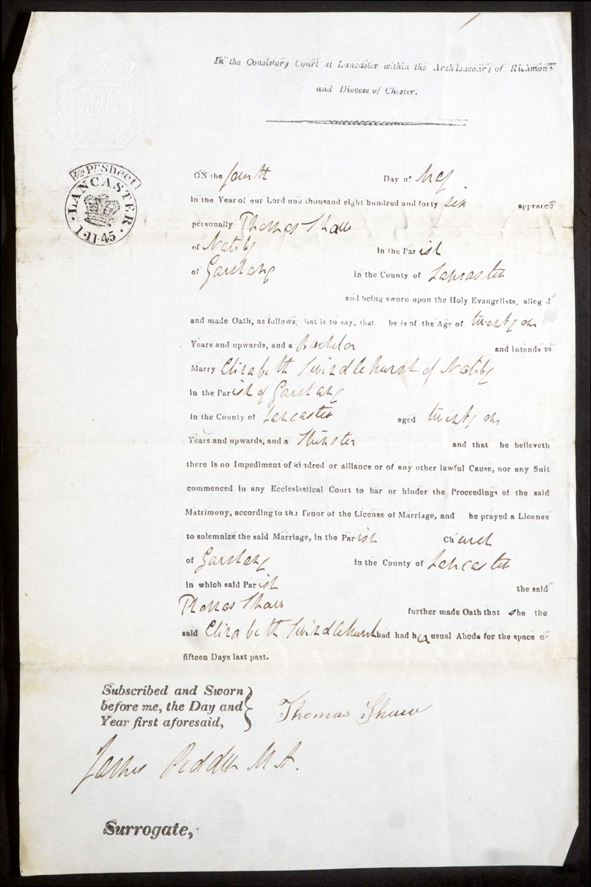 In the Consistory Court at Lancaster within the Archdeaconry of Richmond
and Diocese of Chester.
½ Pr. Sheet
LANCASTER
1·11·45
ON the fourth Day of May
In the Year of our Lord one thousand eight hundred and forty six appeared
personally Thomas Shaw
of Nateby In the Parish
of Garstang in the County of Lancaster
and being sworn upon the Holy Evangelists, alleged
and made Oath, as follows, that is to say, that he is of the Age of twenty one
Years and upwards, and a Bachelor and intends to
Marry Elizabeth Swindlehurst of Nateby
in the Parish of Garstang
in the County of Lancaster aged twenty one
Years and upwards, and a Spinster and that he believeth
there is no Impediment of kindred or alliance or of any other lawful Cause, nor any Suit
commenced in any Ecclesiastical Court to bar or hinder the Proceedings of the said
Matrimony, according to the Tenor of the License of Marriage, and he prayed a License
to solemnize the said Marriage, in the Parish Church
of Garstang in the County of Lancaster
in which said Parish the said
Thomas Shaw further made Oath that she the
said Elizabeth Swindlehurst had had her usual Abode for the space of
fifteen Days last past.
Subscribed and Sworn
before me, the Day and Thomas Shaw
Year first aforesaid,
James Pedder M.A.
Surrogate,